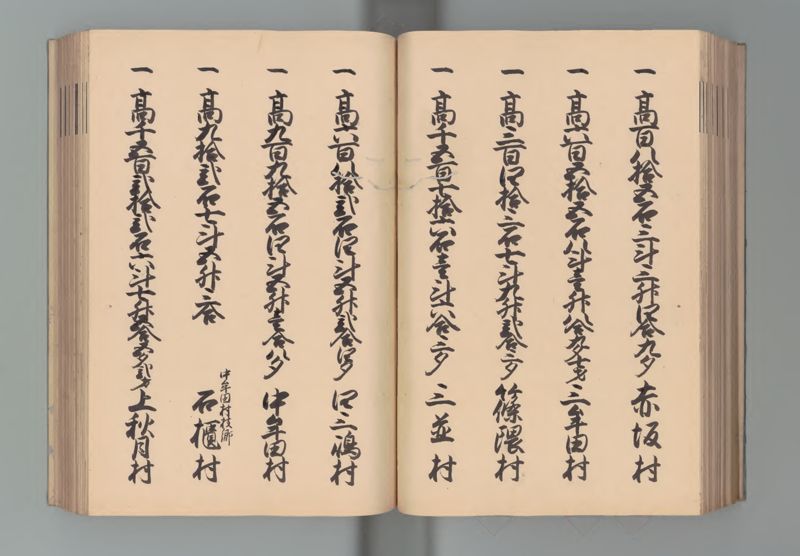 一 高百八拾五石三斗三升四合九夕 赤坂村
一 高六百五拾五石八斗壱升八合九夕七才 三牟田村
一 高三百四拾三石七斗九升弐合三夕 篠隈村
一 高千五百七拾六石壱斗六合三夕 三並村
一 高六百八拾弐石四斗五升弐合四夕 四三嶋村
一 高九百九拾五石四斗五升壱合八夕 中牟田村
中牟田村枝郷
一 高九拾弐石七斗五升三合 石櫃村
一 高千五百弐拾弐石六斗七升弐合五夕弐才 上秋月村